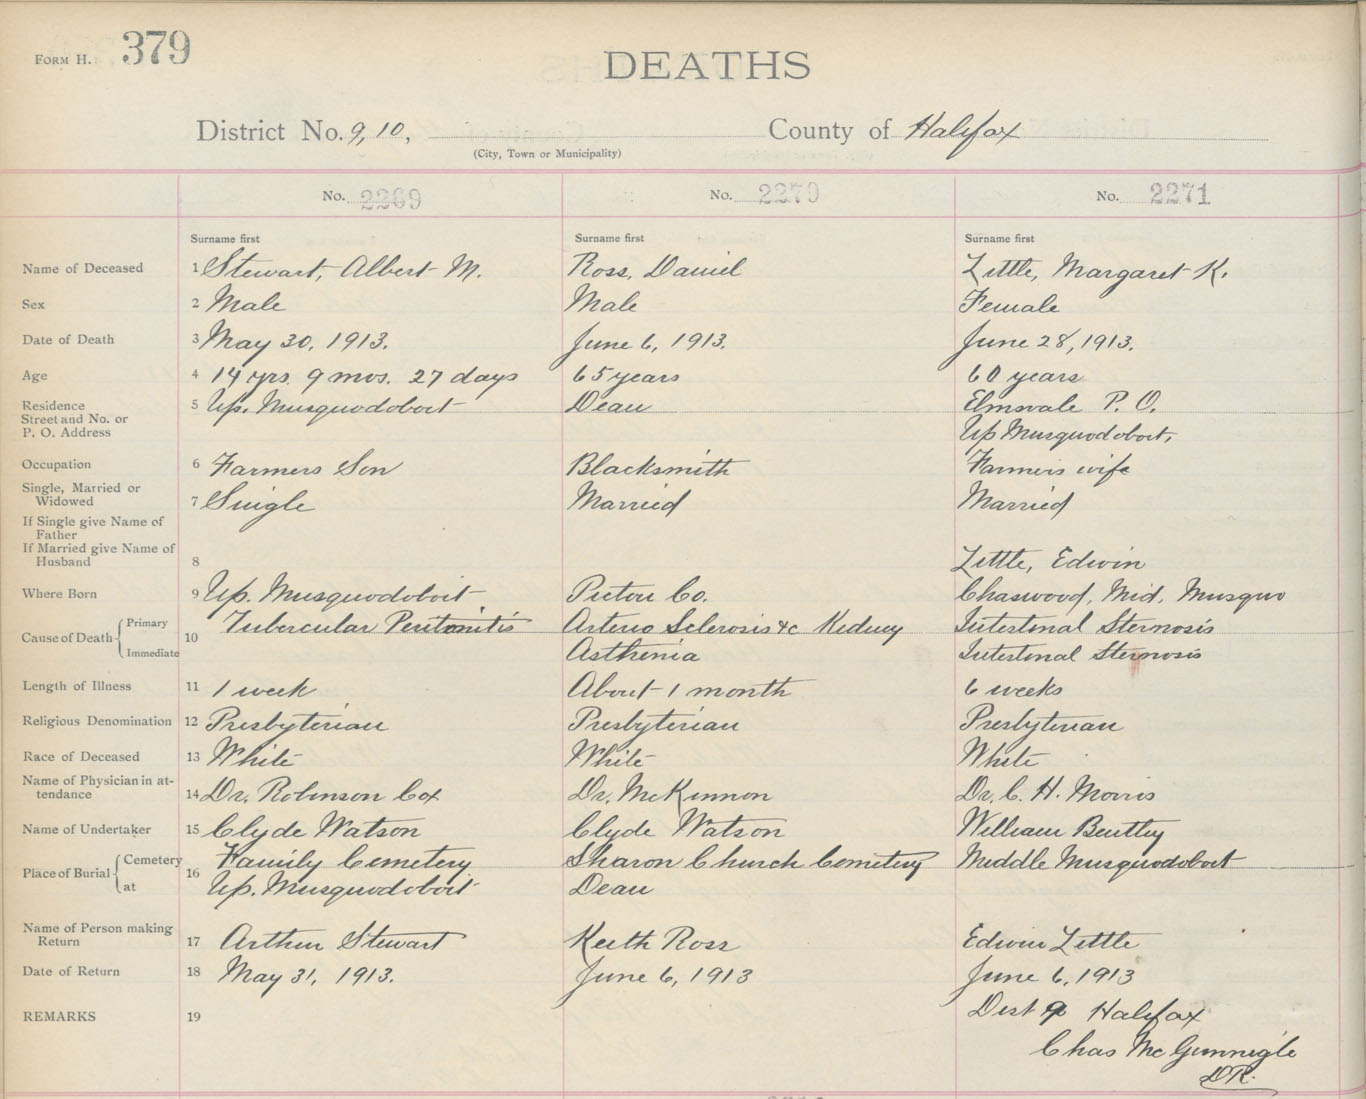 FORM H. 379
DEATHS
District No. 9, 10, County of Halifax
(City, Town or Municipality)
No. 2269 No. 2270 No. 2271
Surname first Surname first Surname first
Name of Deceased 1 Stewart, Albert M. Ross, Daniel Little, Margaret K.
Sex 2 Male Male Female
Date of Death 3 May 30, 1913. June 6, 1913. June 28, 1913.
Age 4 14 yrs. 9 mos. 27 days 65 years 60 years
Residence 5 Up. Musquodoboit Dean Elmsvale P. O.
Street and No. or
P. O. Address Up Musquodoboit,
Occupation 6 Farmers Son Blacksmith Farmers wife
Single, Married or
Widowed 7 Single Married Married
If Single give Name of
Father
If Married give Name of
Husband 8 Little, Edwin
Where Born 9 Up. Musquodoboit Pictou Co. Chaswood, Mid. Musquo
Cause of Death Primary 10 Tubercular Peritonitis Arterio Sclerosis &c Kidney Intestinal Sternosis
Immediate Asthenia Intestinal Sternosis
Length of Illness 11 1 week About 1 month 6 weeks
Religious Denomination 12 Presbyterian Presbyterian Presbyterian
Race of Deceased 13 White White White
Name of Physician in at-
tendance 14 Dr. Robinson Cox Dr. McKinnon Dr. C. H. Morris
Name of Undertaker 15 Clyde Watson Clyde Watson William Bentley
Place of Burial Cemetery 16 Family Cemetery Sharon Church Cemetery Middle Musquodoboit
at Up. Musquodoboit Dean
Name of Person making
Return 17 Arthur Stewart Keith Ross Edwin Little
Date of Return 18 May 31, 1913. June 6, 1913 June 6, 1913
REMARKS 19 Dist 9 Halifax
Chas McGunnigle
D.R.